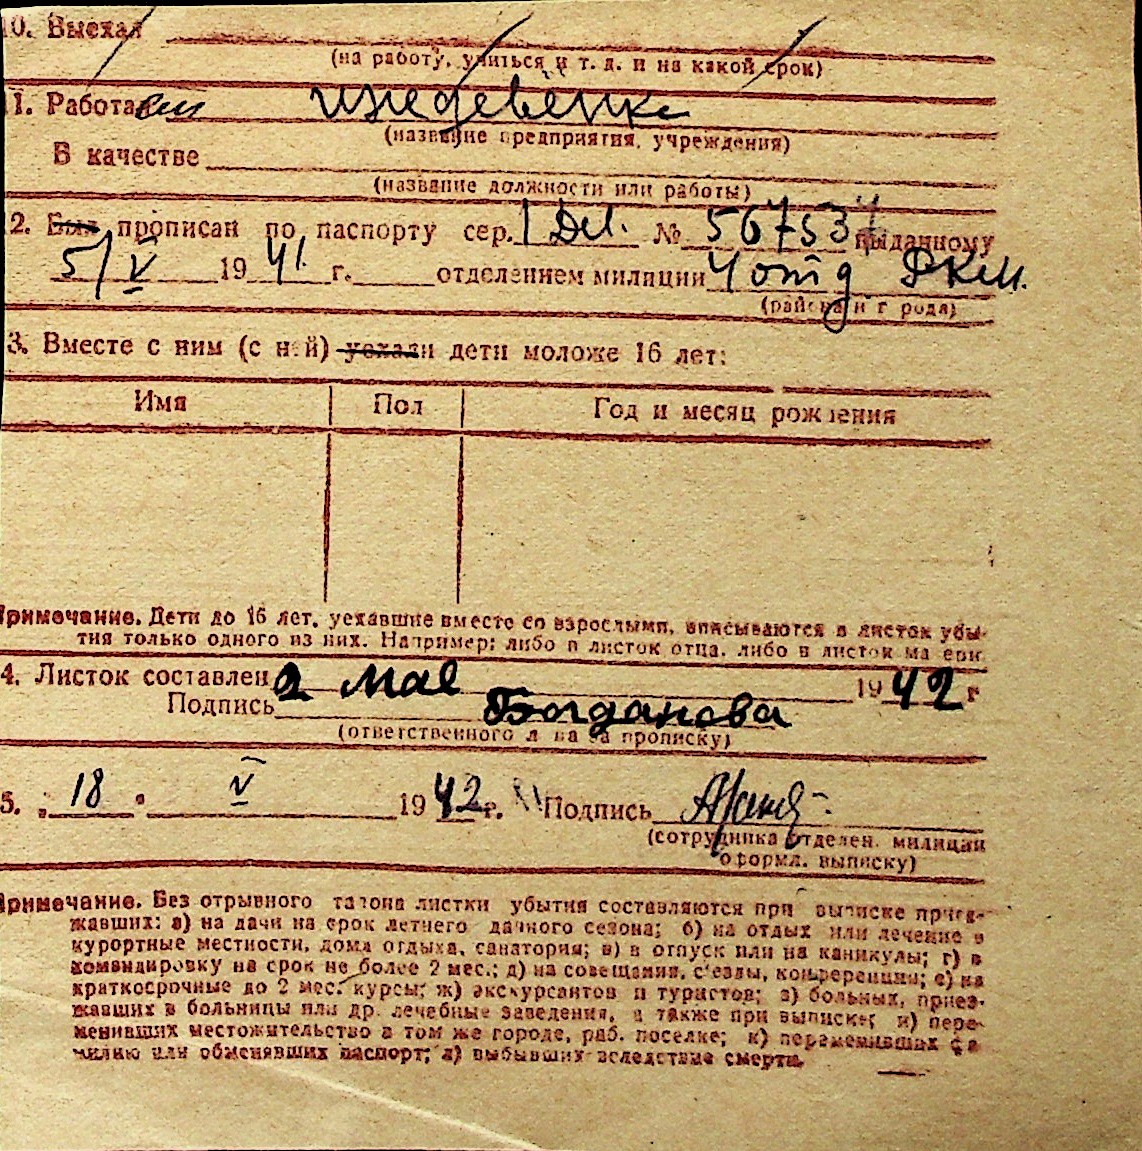 10. Выехал
(на работу, учиться и т. д. и на какой срок)
11. Работает иждевенка
(название предприятия, учреждения)
В качестве
(название должности или работы)
2. Был прописан по паспорту сер. № 567537 выданному
5/V 1941 г. отделением милиции 4 отд РКМ.
(района и города)
3. Вместе с ним (с ней) уехали дети моложе 16 лет:
Имя Пол Год и месяц рождения
Примечание. Дети до 16 лет, уехавшие вместе со взрослыми, вписываются в листок убы-
тия только одного из них. Например: либо в листок отца, либо в листок матери
4. Листок составлен 2 мае 1942 г
Подпись Богданова
(ответственного лица за прописку)
5. „18" V 1942 г. Подпись
(сотрудника отделен. милиции
оформл. выписку)
Примечание. Без отрывного талона листки убытия составляются при выписке приез-
жавших: а) на дачи на срок летнего дачного сезона; б) на отдых или лечение в
курортные местности, дома отдыха, санатория; в) в отпуск или на каникулы; г) в
командировку на срок не более 2 мес.; д) на совещания, с'езды, конференции; е) на
краткосрочные до 2 мес. курсы; ж) экскурсантов и туристов; з) больных, приез-
жавших в больницы или др. лечебные заведения, а также при выписке; и) пере-
менивших местожительство в том же городе, раб. поселке; к) переменивших фа
милию или обменявших паспорт; л) выбывших вследствие смерти.